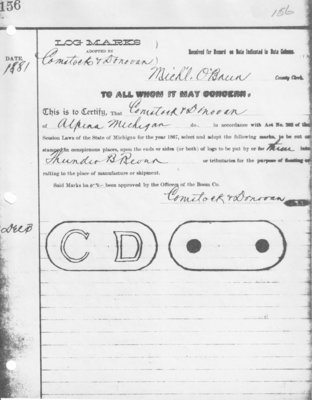 156
156
LOG MARKS
ADOPTED BY
Received for Record on Date Indicated in Date Column.
DATE.
1881
Comstock & Donovan
Mich'l. O'Brien
County Clerk.
TO ALL WHOM IT MAY CONCERN.
This is to Certify, That Comstock & Donovan
of Alpena Michigan do, in accordance with Act No. of the
Session Laws of the State of Michigan for the year 1867, select and adopt the following marks, to be cut or
stamped in conspicuous places, upon the ends or sides (or both) of logs to be put by or for them into
Thunder B River or tributaries for the purpose of floating or
rafting to the place of manufacture or shipment.
Said Marks been approved by the Officers of the Boom Co.
Comstock & Donovan
Dec 8
C D